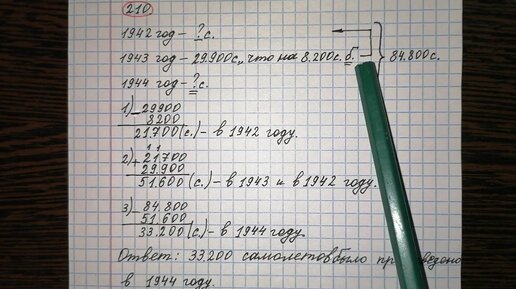 210
1942 год - ? с.
1943 год - 29.900 с., что на 8.200 с. б. 84.800 с.
1944 год - ? с.
1) - 29900
8200
21.700 (с.) - в 1942 году.
1 1
2) + 21.700
29.900
51.600 (с.) - в 1943 и в 1942 году.
3) - 84.800
51.600
33.200 (с.) - в 1944 году.
Ответ: 33200 самолетов было
в 1944 году.